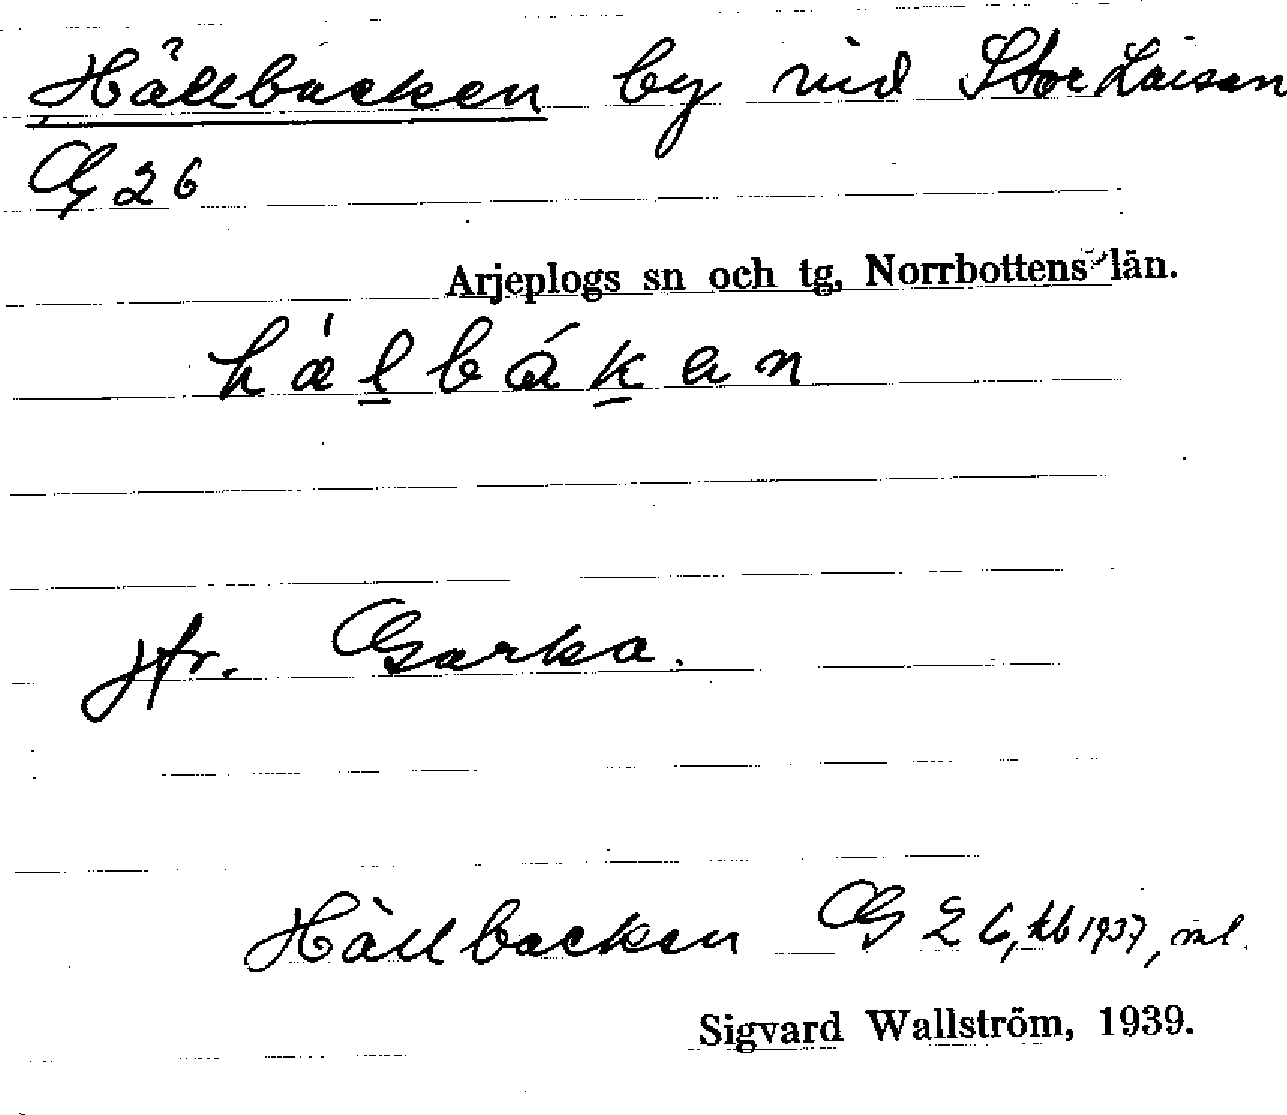 Hällbacken by vid Stor Laisan
G 26
Arjeplogs sn och tg, Norrbottens län.
hæ̀lbákan
jfr. Garka.
Hällbacken G 26, kb 1937, ml.
Sigvard Wallström, 1939.